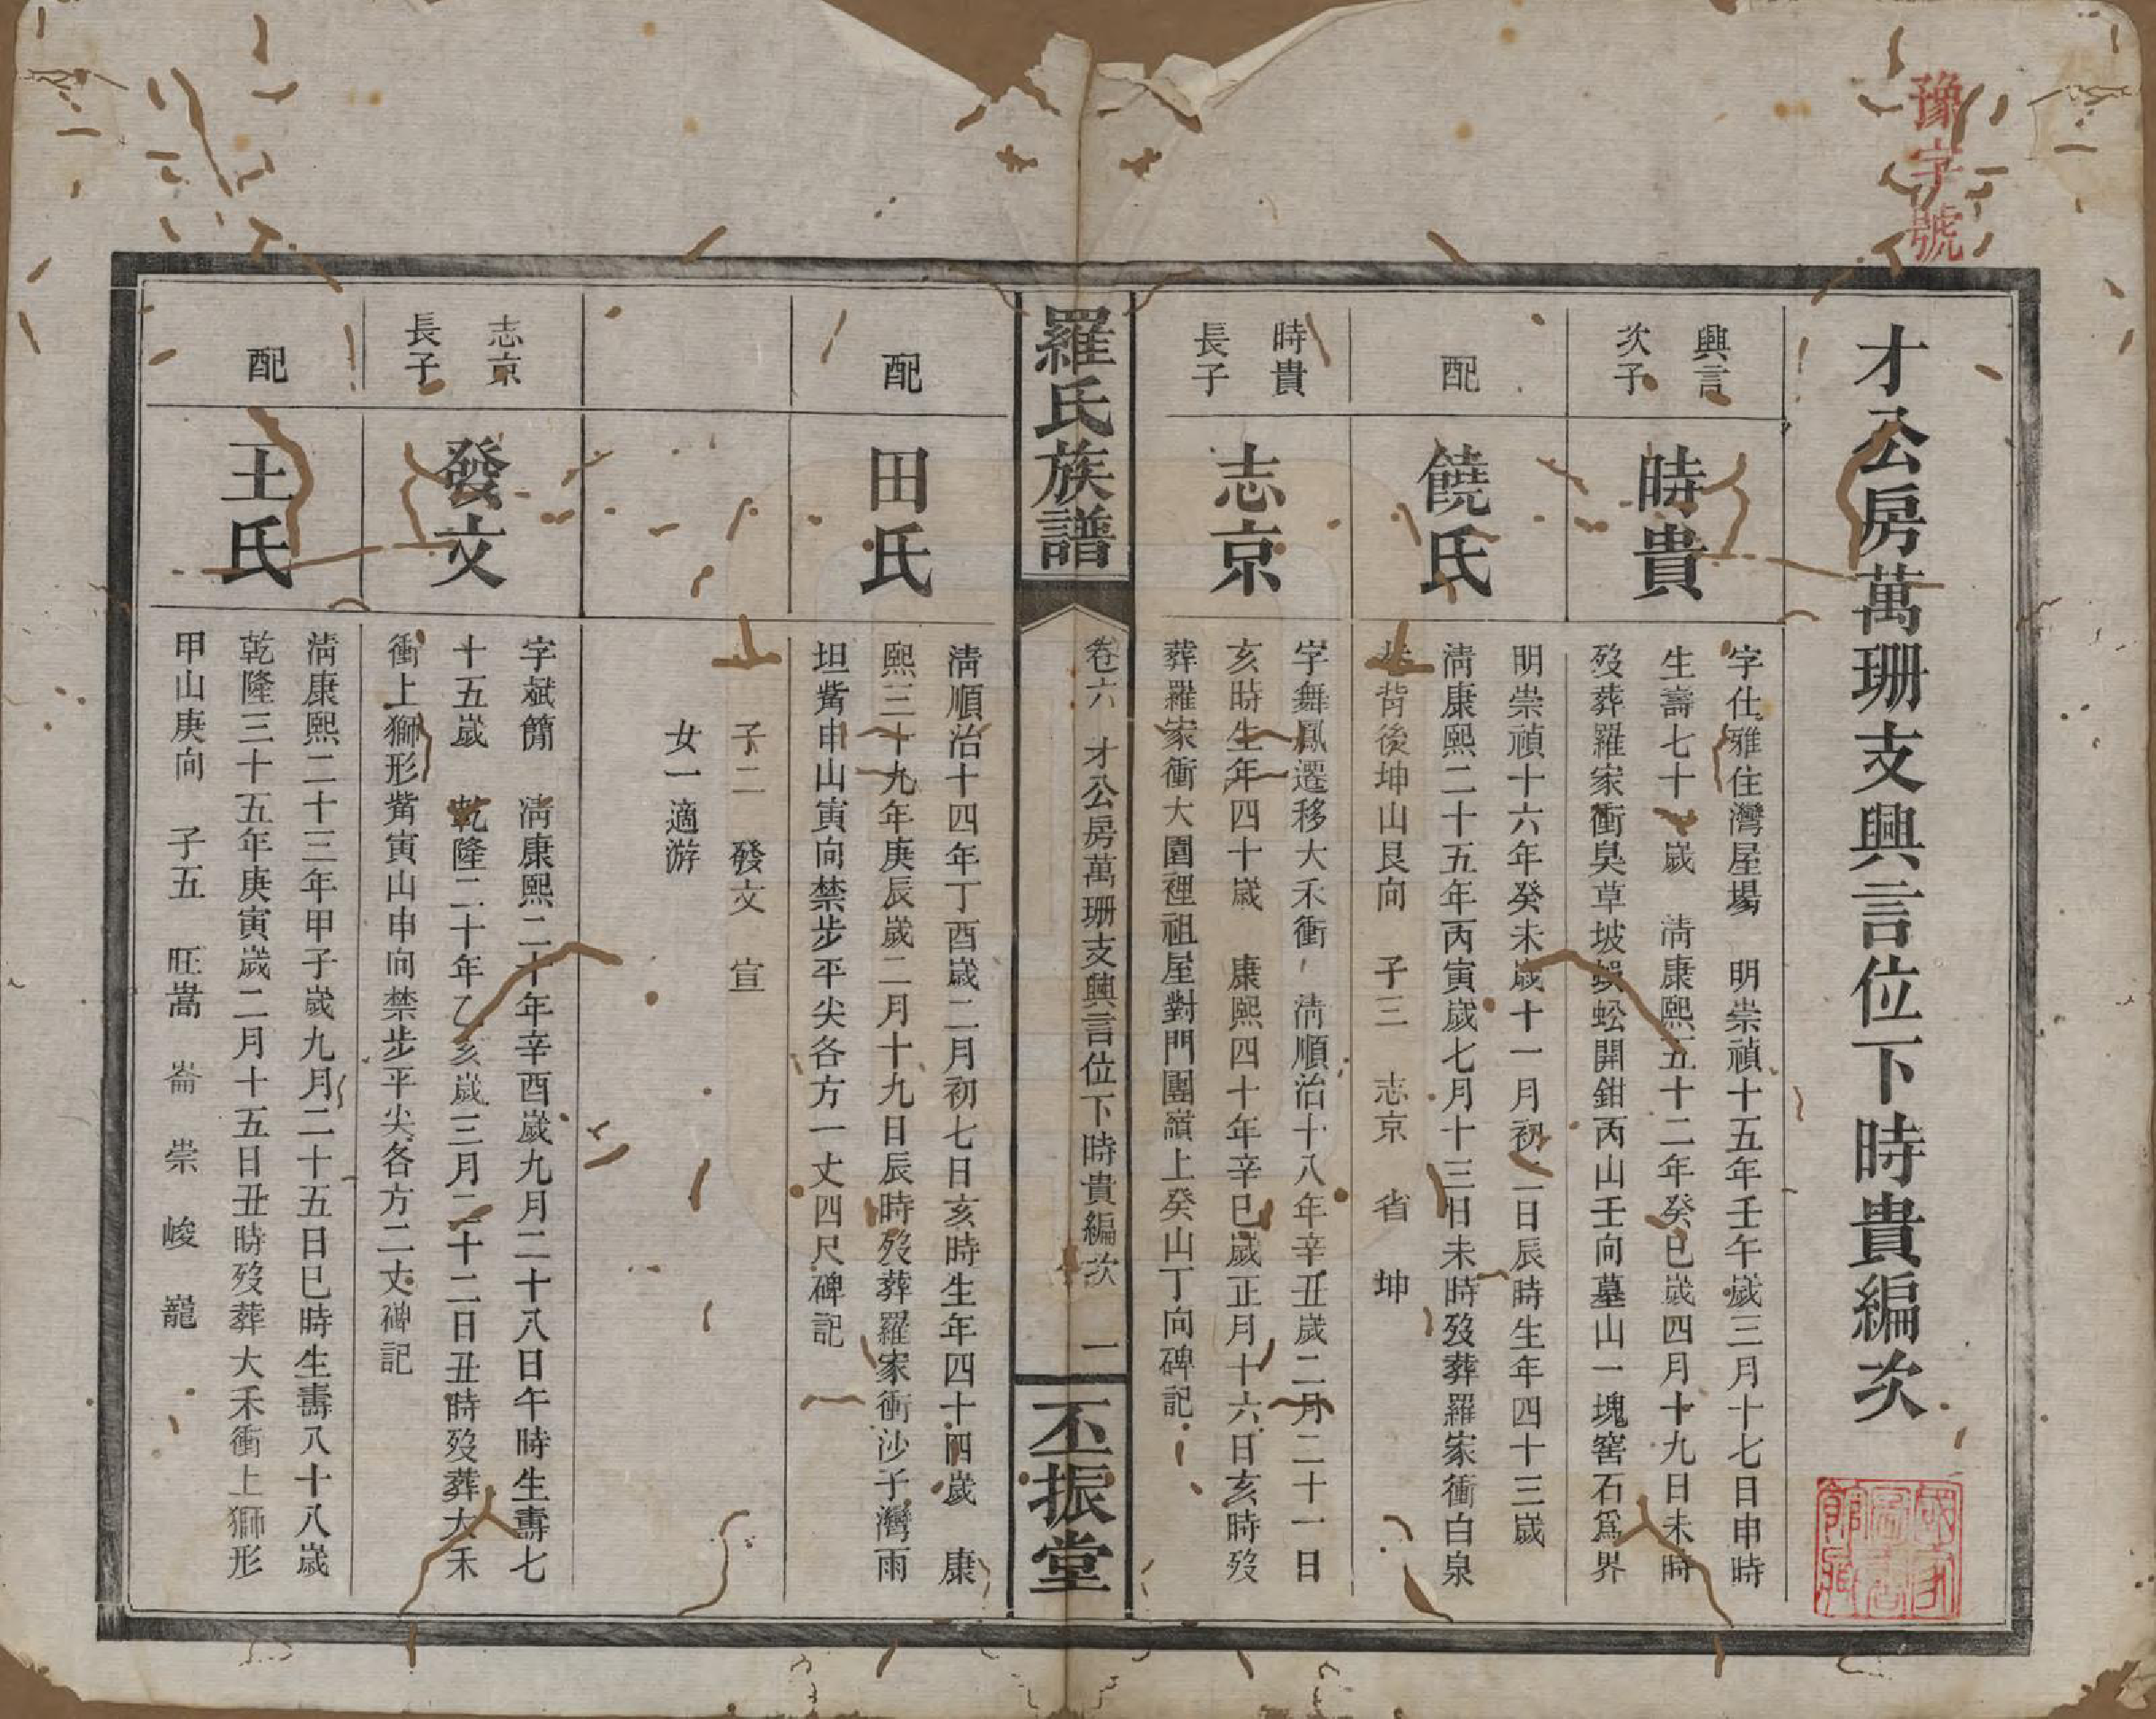 豫字號
才公房萬珊支興言位下時貴編次
興言
次子
時貴
字仕雅住灣屋場 明崇禎十五年壬午歲三月十七日申時
生壽七十 歲 清康熙五十二年癸巳歲四月十九日未時
歿葬羅家衝臭草坡蜈蚣開鉗丙山壬向墓山一塊窖石爲界
配
饒氏
明崇禎十六年癸未歲十一月初 日辰時生年四十三歲
清康熙二十五年丙寅歲七月十三日未時歿葬羅家衝白泉
背後坤山艮向 子三 志京 省 坤
時貴
長子
志京
字舞鳳遷移大禾衝 清順治十八年辛丑歲二月二十一日
亥時生年四十歲 康熙四十年辛巳歲正月十六日亥時歿
葬羅家衝大園裡祖屋對門團嶺上癸山丁向碑記
羅氏族譜
卷六 才公房萬珊支興言位下時貴編次 一
丕振堂
配
田氏
清順治十四年丁酉歲二月初七日亥時生年四十四歲 康
熙三十九年庚辰歲二月十九日辰時歿葬羅家衝沙子灣雨
坦觜申山寅向禁步平尖各方一丈四尺碑記
子二 發文 宣
女一適游
志京
長子
發文
字斌簡 清康熙二十年辛酉歲九月二十八日午時生壽七
十五歲 乾隆二十年乙亥歲三月二十二日丑時歿葬大禾
衝上獅形觜寅山申向禁步平尖各方二丈碑記
配
王氏
清康熙二十三年甲子歲九月二十五日巳時生壽八十八歲
乾隆三十五年庚寅歲二月十五日丑時歿葬大禾衝上獅形
甲山庚向 子五 旺嵩 崙 崇 峻 巃
國家圖書館藏